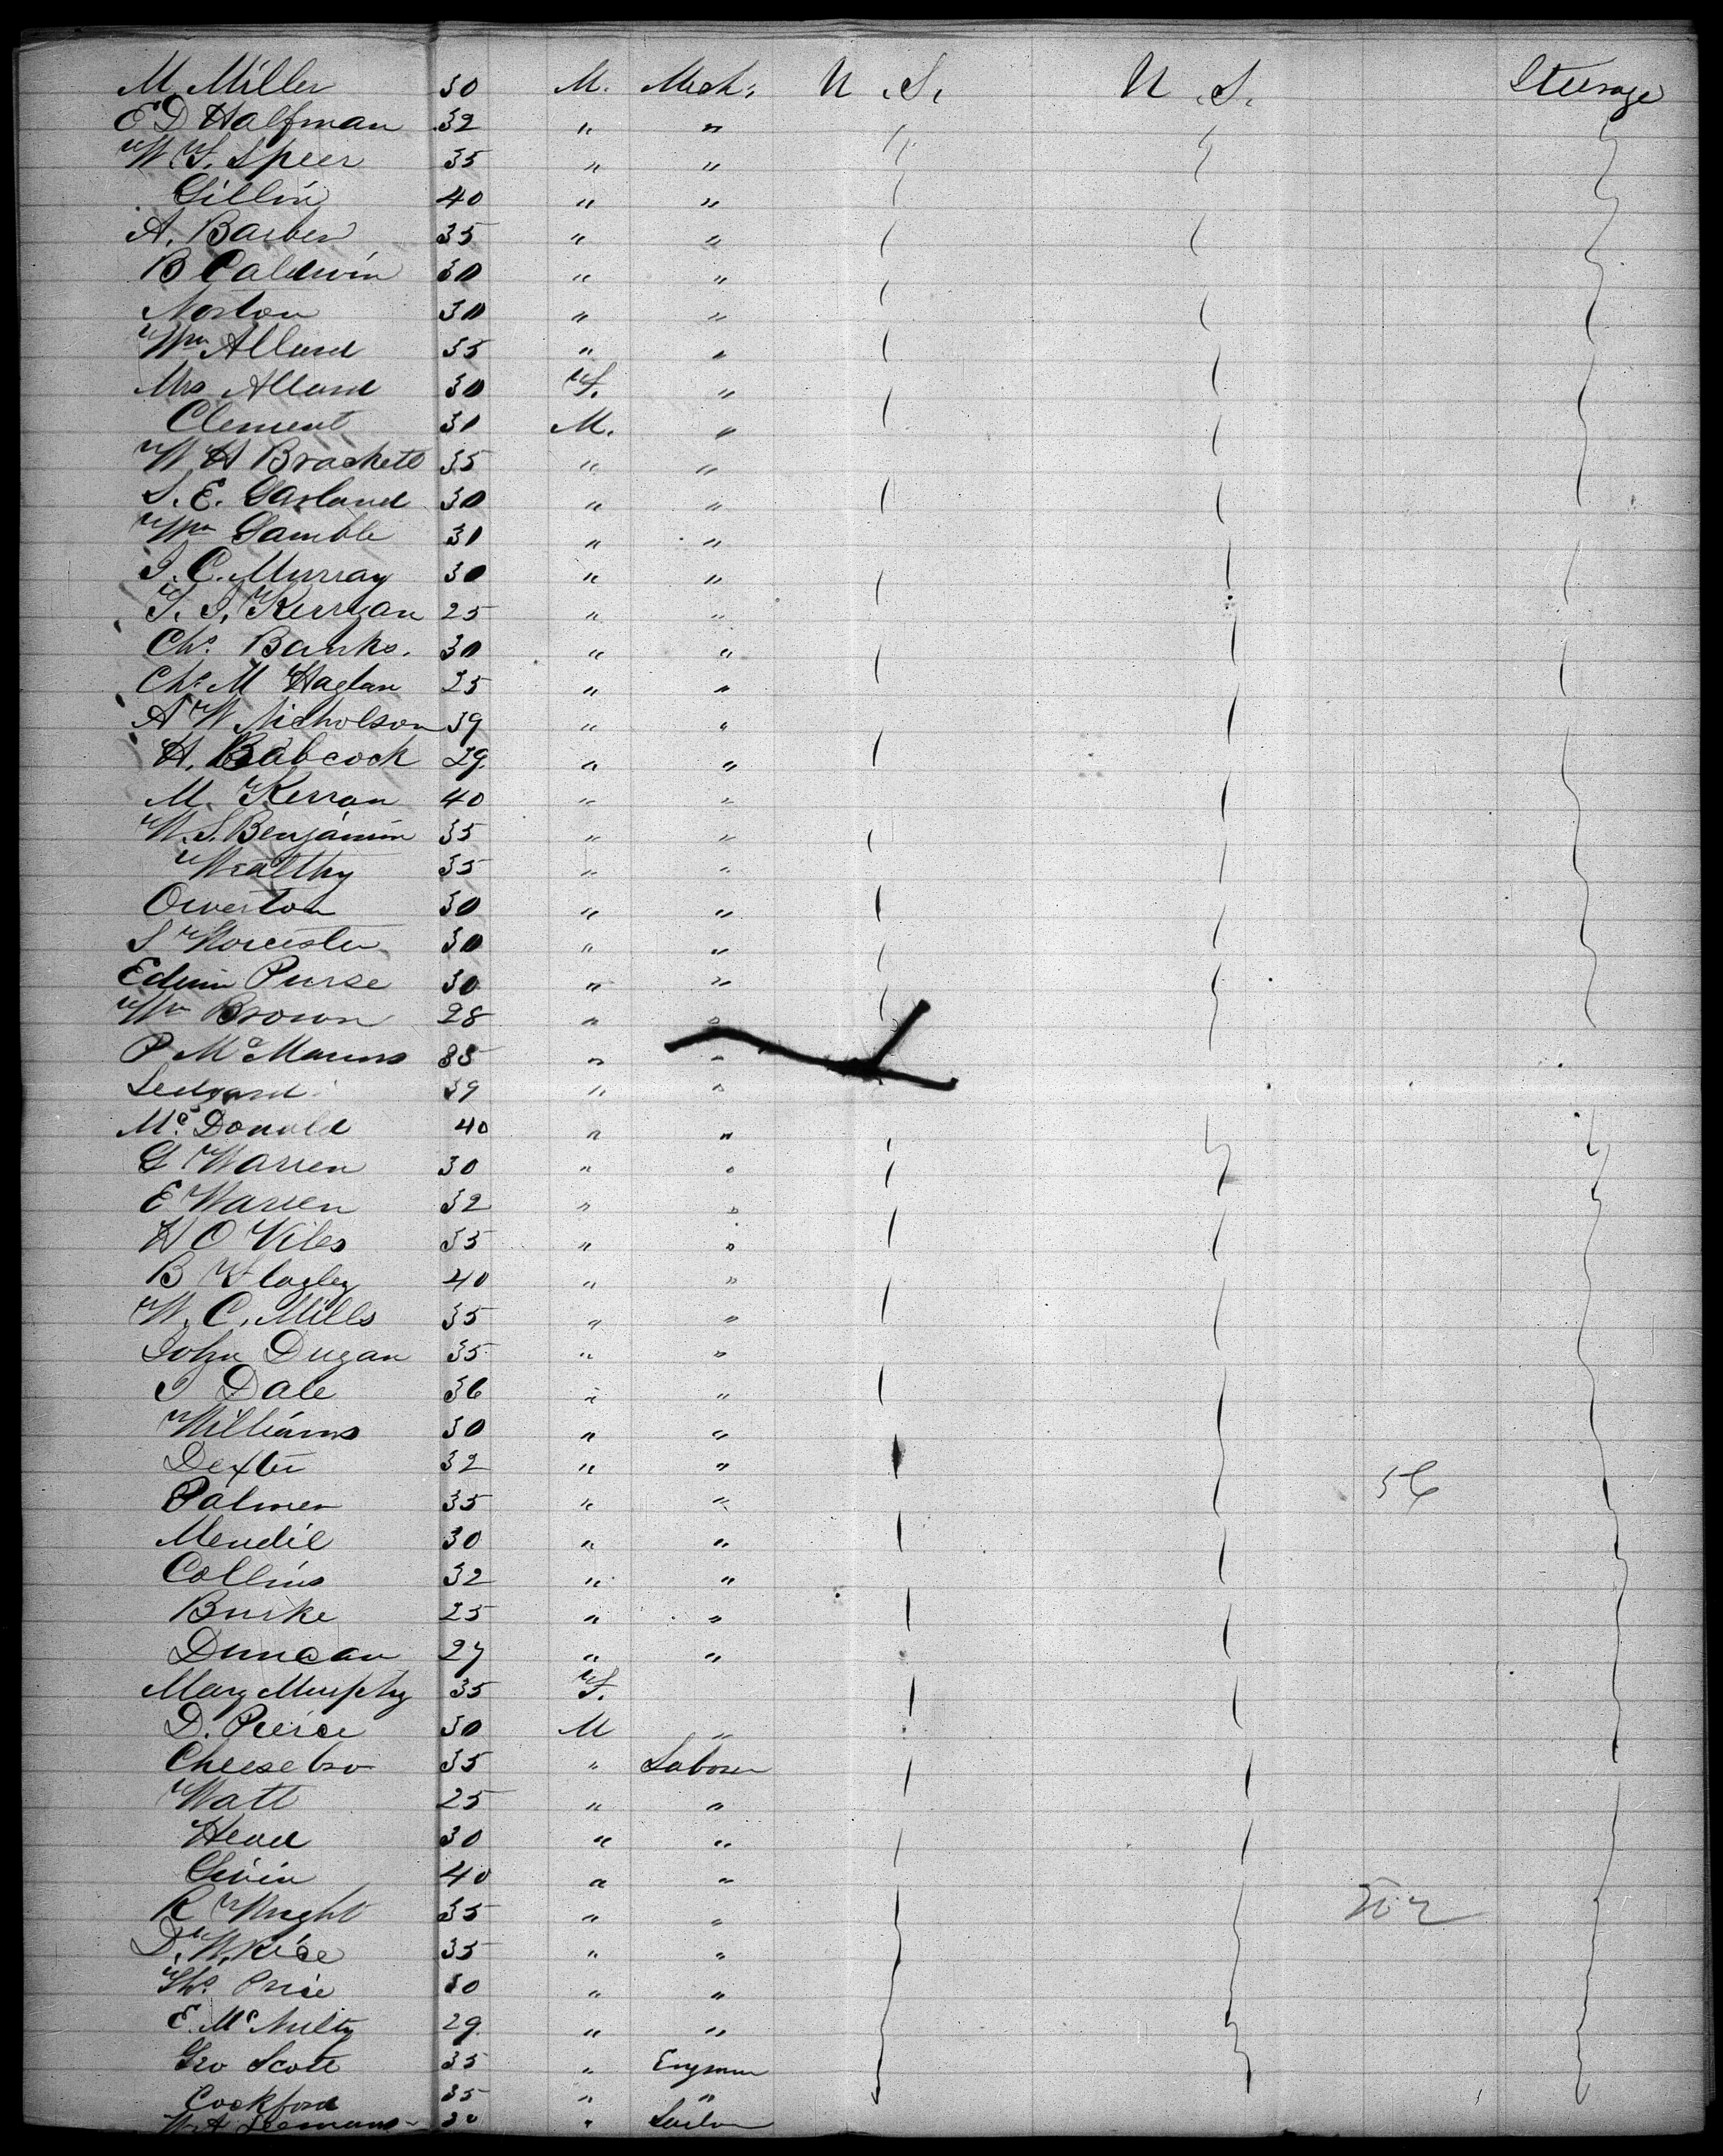 M. Miller 30 M. Mech. U.S. U.S. Steerage
E D Halfman 32 " "
W. S. Speer 35 " "
Gillin 40 " "
A. Barber 35 " "
B Caldwin 30 " "
Norton 30 " "
Wm Allard 35 " "
Mrs Allard 30 F. "
Clement 30 M. "
W H Brackett 35 " "
S. E. Garland 30 " "
Wm Gamble 30 " "
J. C. Murray 30 " "
T. J. Kerrigan 25 " "
Chs. Banks. 30 " "
Chs. M Haglan 25 " "
A W Nicholson 39 " "
H. Babcock 29. " "
M. Kerran 40 " "
W. S. Benjamin 35 " "
Wealthy 35 " "
Overton 30 " "
S Worcester 30 " "
Edwin Purse 30 " "
Wm Brown 28 " "
P McManns 35 " "
39 " "
Mc Donald 40 " "
G Warren 30 " "
E Warren 32 " "
H O Viles 35 " "
B Flagley 40 " "
W. C. Mills 35 " "
John Dugan 35 " "
J Dale 36 " "
Williams 30 " "
Dexter 32 " "
Palmer 35 " " 56
Mendil 30 " "
Collins 32 " "
Burke 25 " "
Duncan 27 " "
Mary Murphy 35 F.
D. Pierce 30 M "
Cheesebro 35 " Laborer
Watt 25 " "
Head 30 " "
Givin 40 " "
R Wright 35 " "
D. W. Rice 35 " "
Ths. Price 30 " "
E. McNulty 29. " "
Geo Scott 35 " Engineer
Cockford 35 " "
W A Leemans 30 " Sailor